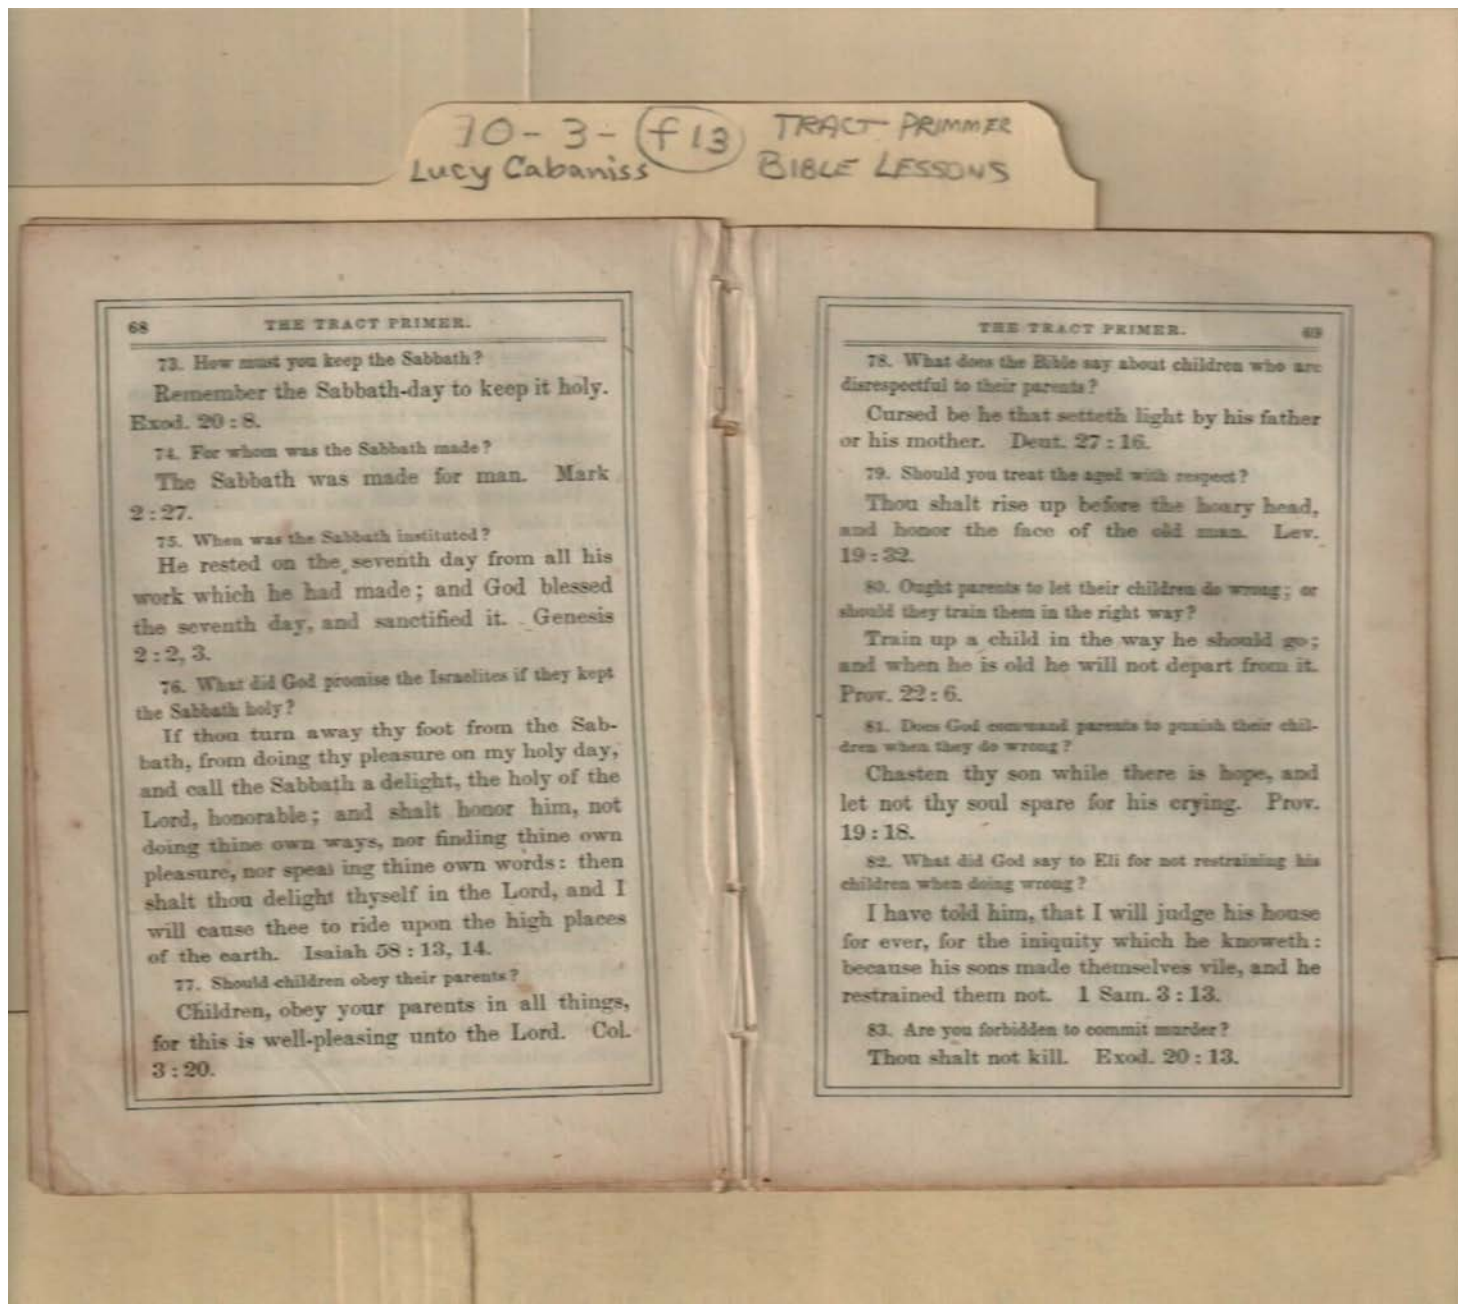 10-3-f13 TRACT PRIMMER
Lucy Cabaniss BIBLE LESSONS
68 THE TRACT PRIMER.
73. How must you keep the Sabbath?
Remember the Sabbath-day to keep it holy.
Exod. 20 : 8.
74. For whom was the Sabbath made?
The Sabbath was made for man. Mark
2 : 27.
75. When was the Sabbath instituted?
He rested on the seventh day from all his
work which he had made; and God blessed
the seventh day, and sanctified it. Genesis
2 : 2, 3.
76. What did God promise the Israelites if they kept
the Sabbath holy?
If thou turn away thy foot from the Sab-
bath, from doing thy pleasure on my holy day,
and call the Sabbath a delight, the holy of the
Lord, honorable; and shalt honor him, not
doing thine own ways, nor finding thine own
pleasure, nor speaking thine own words: then
shalt thou delight thyself in the Lord, and I
will cause thee to ride upon the high places
of the earth. Isaiah 58 : 13, 14.
77. Should children obey their parents?
Children, obey your parents in all things,
for this is well-pleasing unto the Lord. Col.
3 : 20.
THE TRACT PRIMER. 69
78. What does the Bible say about children who are
disrespectful to their parents?
Cursed be he that setteth light by his father
or his mother. Deut. 27 : 16.
79. Should you treat the aged with respect?
Thou shalt rise up before the hoary head,
and honor the face of the old man. Lev.
19 : 32.
80. Ought parents to let their children do wrong; or
should they train them in the right way?
Train up a child in the way he should go;
and when he is old he will not depart from it.
Prov. 22 : 6.
81. Does God command parents to punish their chil-
dren when they do wrong?
Chasten thy son while there is hope, and
let not thy soul spare for his crying. Prov.
19 : 18.
82. What did God say to Eli for not restraining his
children when doing wrong?
I have told him, that I will judge his house
for ever, for the iniquity which he knoweth:
because his sons made themselves vile, and he
restrained them not. 1 Sam. 3 : 13.
83. Are you forbidden to commit murder?
Thou shalt not kill. Exod. 20 : 13.